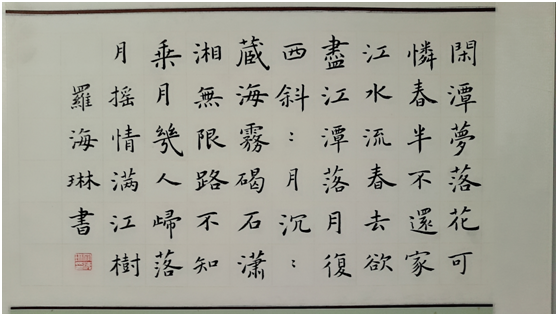 閑潭夢落花可
憐春半不還家
江水流春去欲
盡江潭落月復
西斜：月沉：
蔵海霧碣石瀟
湘無限路不知
乗月幾人歸落
月摇情满江樹
羅海琳書